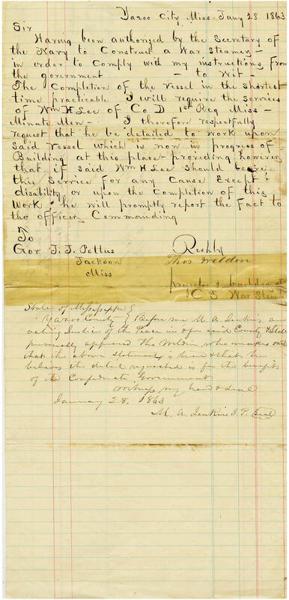 Yazoo City, Miss. Jany 28 1863
Sir
Having been authorized by the Secretary of
the Navy to Construct a War Steamer -
in order to Comply with my instructions from
the government - to Wit -
The Completion of the Vessel in the Shortest
time practicable I will require the Services
of Wm H Lee of Co D 1st Reg Miss -
Minute Men - I therefore respectfully
request that he be detailed to work upon
said Vessel which is now in progress of
Building at this place providing however
that if said Wm H Lee Should
this Service for any Cause Except
disability or upon the Completion of this
Work, he will promptly report the fact to
the officer Commanding
To
Gov J. J. Pettus
Jackson
Miss
Respty
Thos Weldon
builder of
C. S. War Str
State of Mississippi
Yazoo County Before me M. A. Jenkins an
acting Justice of the Peace in & for said County & State
personally appeared Tho Weldon who makes oath
that the above statement is true & that he
believes the detail requested is for the benefit
of the Confederate Government
Witness my hand & seal
January 28, 1863
M. A. Jenkins J. P. Seal